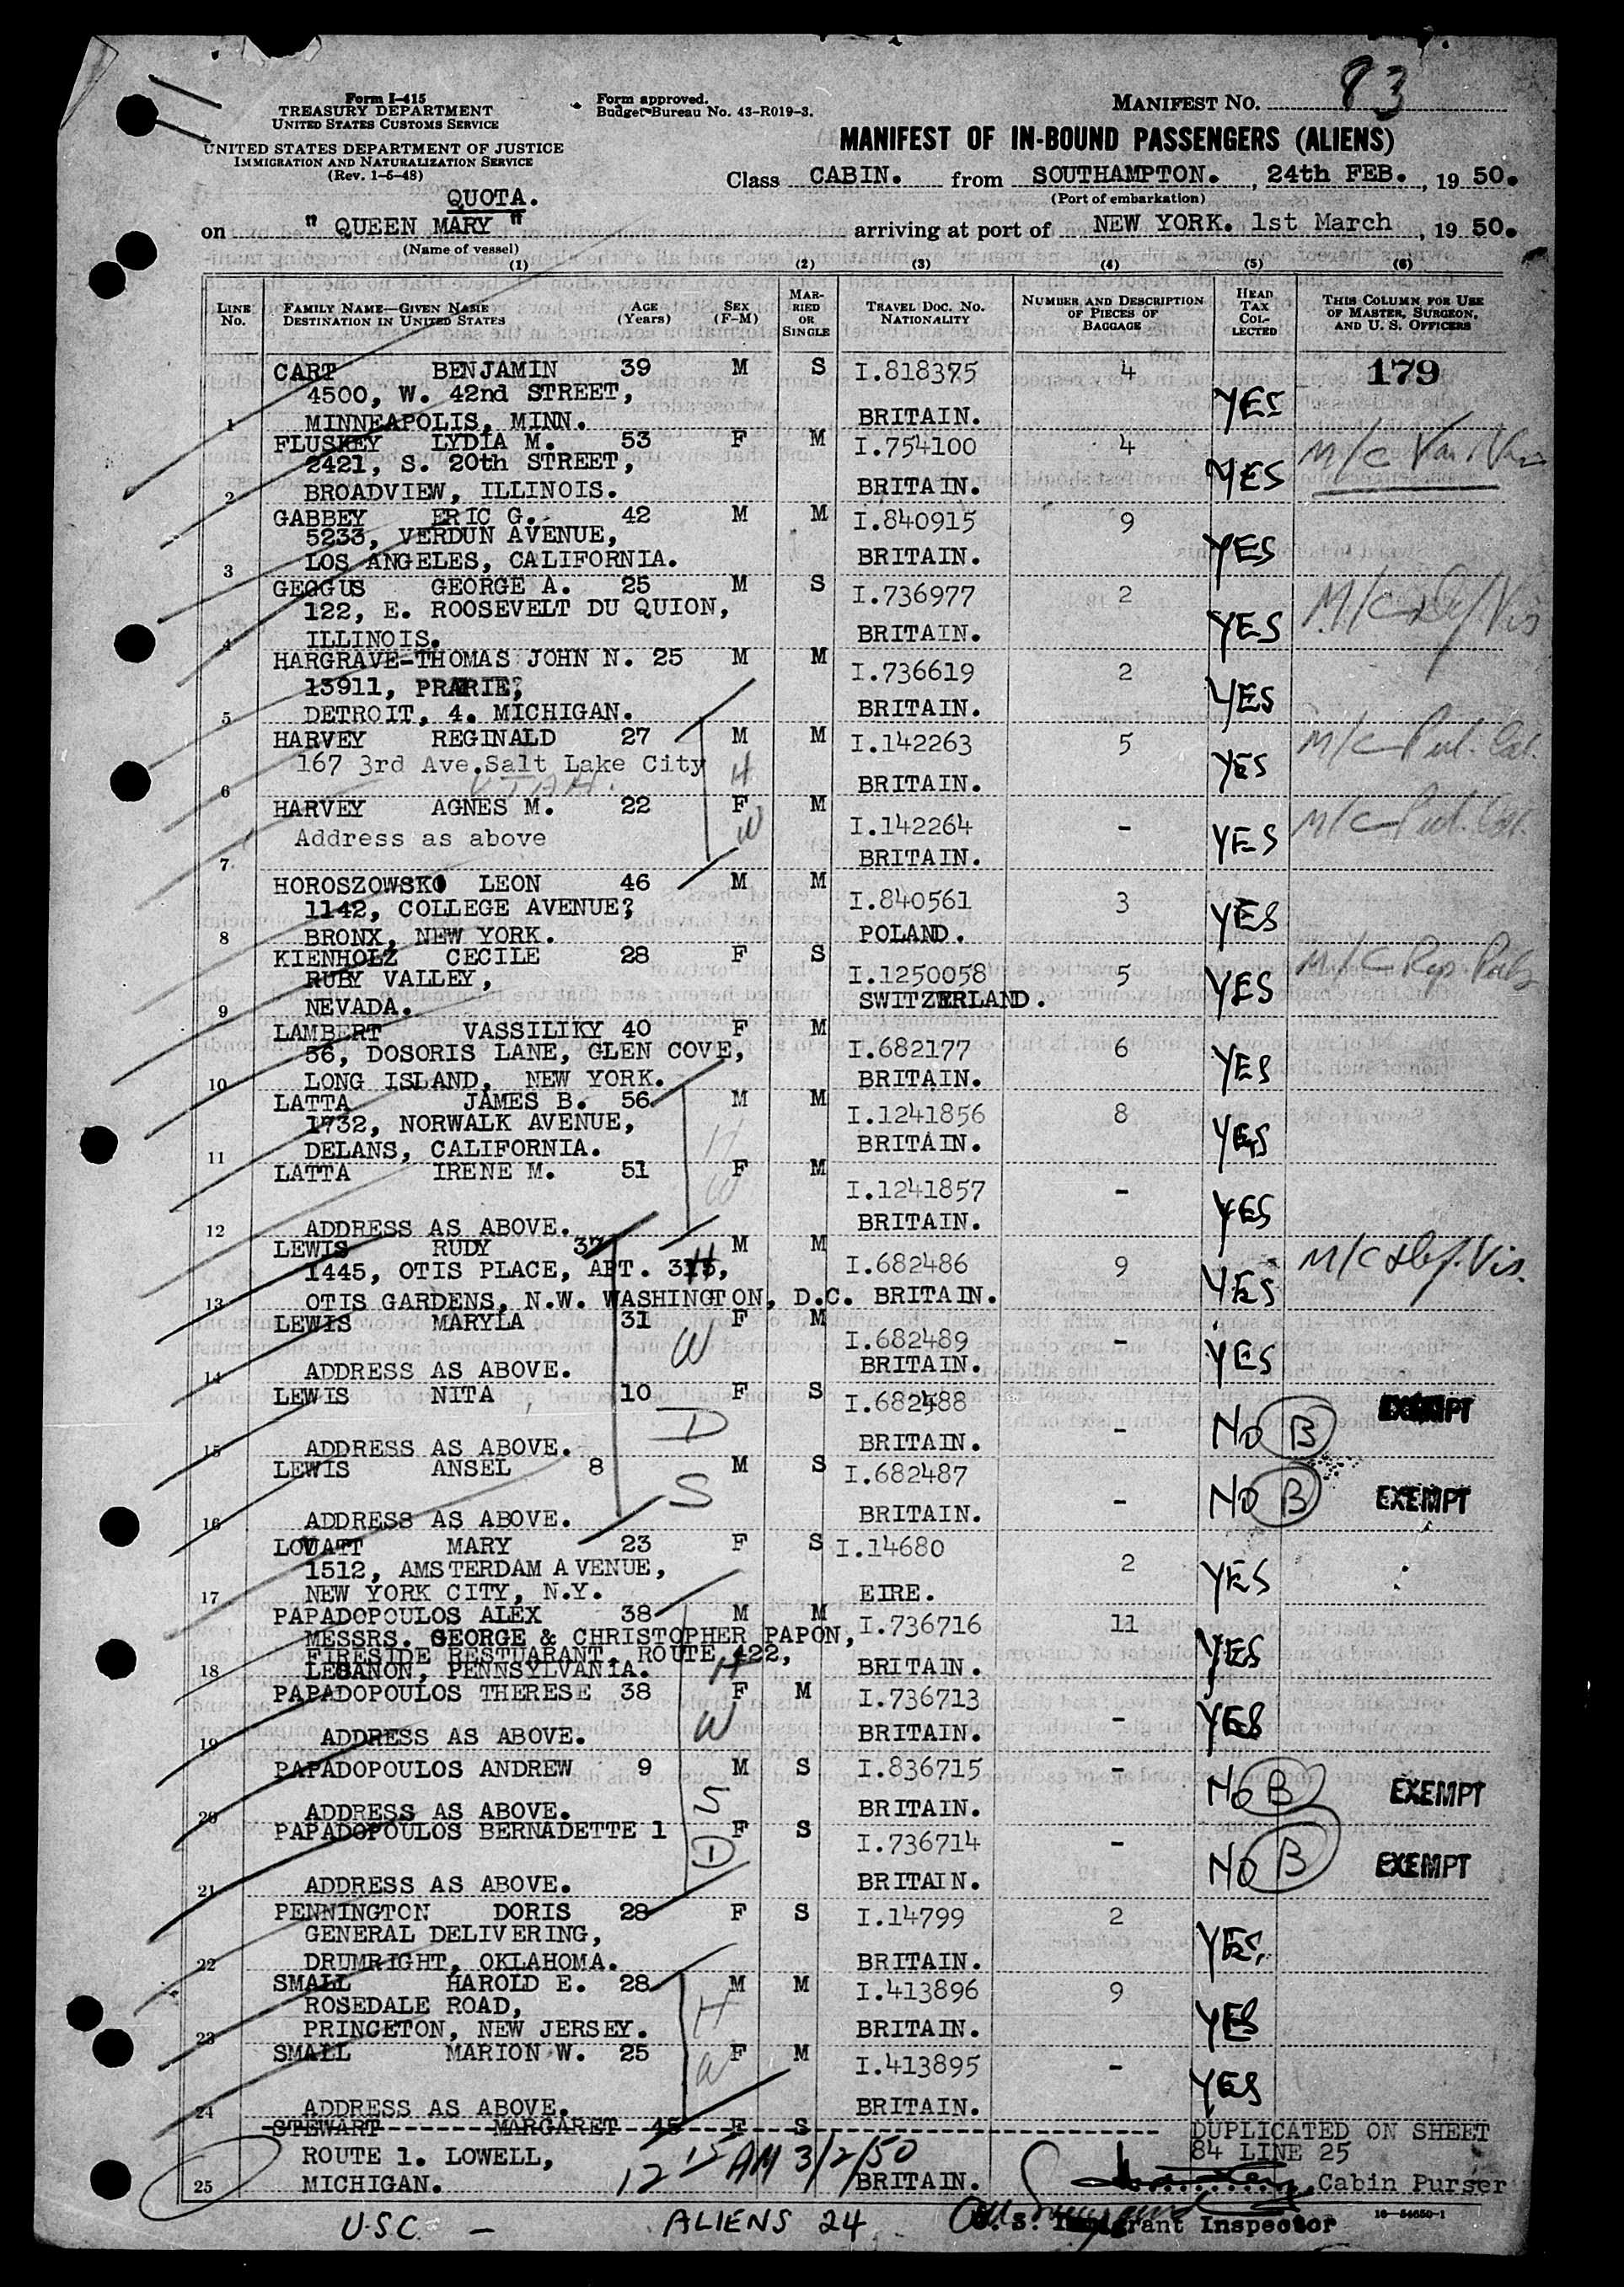 Form I-415
TREASURY DEPARTMENT
UNITED STATES CUSTOMS SERVICE
UNITED STATES DEPARTMENT OF JUSTICE
IMMIGRATION AND NATURALIZATION SERVICE
(Rev. 1-5-48)
Form approved.
Budget Bureau No. 43-R019-3.
MANIFEST NO. 83
MANIFEST OF IN-BOUND PASSENGERS (ALIENS)
Class CABIN. from SOUTHAMPTON. , 24th FEB. , 19 50.
(Port of embarkation)
QUOTA.
on " QUEEN MARY " arriving at port of NEW YORK. 1st March , 19 50.
(Name of vessel)
(1) (2) (3) (4) (5) (6)
LINE No. FAMILY NAME—GIVEN NAME DESTINATION IN UNITED STATES AGE (Years) SEX (F-M) MARRIED OR SINGLE TRAVEL DOC. NO. NATIONALITY NUMBER AND DESCRIPTION OF PIECES OF BAGGAGE HEAD TAX COLLECTED THIS COLUMN FOR USE OF MASTER, SURGEON, AND U. S. OFFICERS
CART BENJAMIN 39 M S I.818375 4 179
4500, W. 42nd STREET, YES
1 MINNEAPOLIS, MINN. BRITAIN.
FLUSKEY LYDIA M. 53 F M I.754100 4 M/C
2421, S. 20th STREET, YES
2 BROADVIEW, ILLINOIS. BRITAIN.
GABBEY ERIC G. 42 M M I.840915 9
5233, VERDUN AVENUE, YES
3 LOS ANGELES, CALIFORNIA. BRITAIN.
GEGGUS GEORGE A. 25 M S I.736977 2 M/C Def. Vis
122, E. ROOSEVELT DU QUION, YES
4 ILLINOIS. BRITAIN.
HARGRAVE-THOMAS JOHN N. 25 M M I.736619 2
13911, PRARIE, YES
5 DETROIT, 4. MICHIGAN. BRITAIN.
HARVEY REGINALD 27 M M I.142263 5 M/C
167 3rd Ave.Salt Lake City H YES
6 UTAH. BRITAIN.
HARVEY AGNES M. 22 F M I.142264 - M/C
Address as above W YES
7 BRITAIN.
HOROSZOWSKI LEON 46 M M I.840561 3
1142, COLLEGE AVENUE, YES
8 BRONX, NEW YORK. POLAND.
KIENHOLZ CECILE 28 F S I.1250058 5 M/C
RUBY VALLEY, YES
9 NEVADA. SWITZERLAND.
LAMBERT VASSILIKY 40 F M I.682177 6
56, DOSORIS LANE, GLEN COVE, YES
10 LONG ISLAND, NEW YORK. BRITAIN.
LATTA JAMES B. 56 M M I.1241856 8
1732, NORWALK AVENUE, H YES
11 DELANS, CALIFORNIA. BRITAIN.
LATTA IRENE M. 51 F M I.1241857 -
W YES
12 ADDRESS AS ABOVE. BRITAIN.
LEWIS RUDY 37 M M I.682486 9 M/C Def. Vis.
1445, OTIS PLACE, APT. 315, H YES
13 OTIS GARDENS, N.W. WASHINGTON, D.C. BRITAIN.
LEWIS MARYLA 31 F M I.682489 -
W YES
14 ADDRESS AS ABOVE. BRITAIN.
LEWIS NITA 10 F S I.682488 - EXEMPT
D NO B
15 ADDRESS AS ABOVE. BRITAIN.
LEWIS ANSEL 8 M S I.682487 - EXEMPT
S NO B
16 ADDRESS AS ABOVE. BRITAIN.
LOVATT MARY 23 F S I.14680 2
1512, AMSTERDAM AVENUE, YES
17 NEW YORK CITY, N.Y. EIRE.
PAPADOPOULOS ALEX 38 M M I.736716 11
MESSRS. GEORGE & CHRISTOPHER PAPON, YES
FIRESIDE RESTUARANT, ROUTE 422,
18 LEBANON, PENNSYLVANIA. H BRITAIN.
PAPADOPOULOS THERESE 38 F M I.736713 -
W YES
19 ADDRESS AS ABOVE. BRITAIN.
PAPADOPOULOS ANDREW 9 M S I.836715 - EXEMPT
S NO B
20 ADDRESS AS ABOVE. BRITAIN.
PAPADOPOULOS BERNADETTE 1 F S I.736714 - EXEMPT
D NO B
21 ADDRESS AS ABOVE. BRITAIN.
PENNINGTON DORIS 28 F S I.14799 2
GENERAL DELIVERING, YES
22 DRUMRIGHT, OKLAHOMA. BRITAIN.
SMALL HAROLD E. 28 M M I.413896 9
ROSEDALE ROAD, H YES
23 PRINCETON, NEW JERSEY. BRITAIN.
SMALL MARION W. 25 F M I.413895 -
W YES
24 ADDRESS AS ABOVE. BRITAIN.
STEWART MARGARET 45 F S DUPLICATED ON SHEET
ROUTE 1. LOWELL, 84 LINE 25
25 MICHIGAN. 12 15 AM 3/2/50 BRITAIN. Cabin Purser
U.S.C. — ALIENS 24 U. S. Immigrant Inspector 16-54650-1